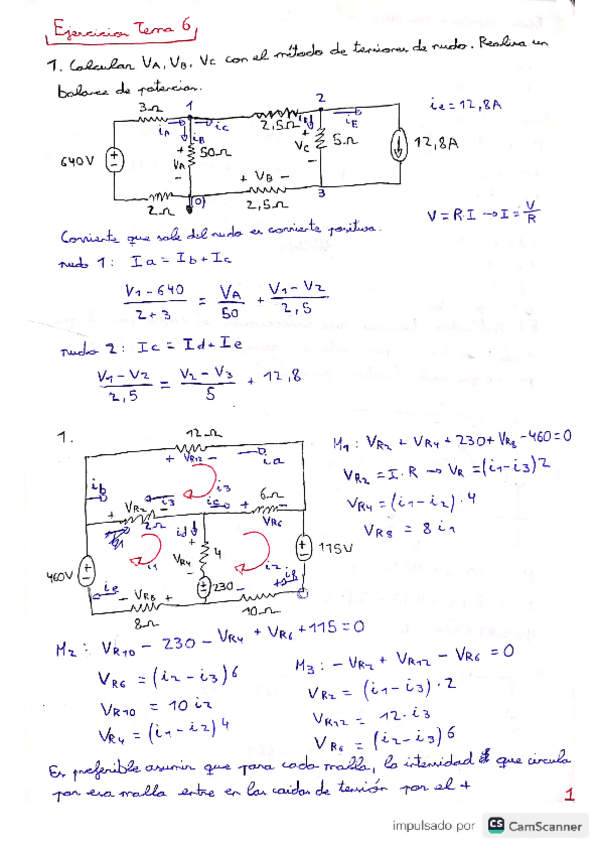 Ejercicios Tema 6
1. Calcular VA, VB, VC con el método de tensiones de nudo. Realiza un
balance de potencias.
3Ω 1 iC 2,5Ω 2 iE ie = 12,8A
iA iB
640V + VA - 50Ω + VC - 5Ω 12,8A
2Ω 0) + VB - 2,5Ω 3
V = R·I → I = V/R
Corriente que sale del nudo es corriente positiva.
nudo 1: Ia = Ib + Ic
(V1 - 640)/(2+3) = VA/50 + (V1 - V2)/2,5
nudo 2: Ic = Id + Ie
(V1 - V2)/2,5 = (V2 - V3)/5 + 12,8
1.
12Ω
+ VR12 - ia
ib i3 i3 ic 6Ω
+ VR2 - 2Ω id + VR6
i1 VR4 4 i2 115V
460V ie - VR8 + 230 10Ω
8Ω
M1: VR2 + VR4 + 230 + VR8 - 460 = 0
VR2 = I·R → VR = (i1 - i3)2
VR4 = (i1 - i2)·4
VR8 = 8 i1
M2: VR10 - 230 - VR4 + VR6 + 115 = 0
VR6 = (i2 - i3)6
VR10 = 10 i2
VR4 = (i1 - i2)4
M3: - VR2 + VR12 - VR6 = 0
VR2 = (i1 - i3)·2
VR12 = 12·i3
VR6 = (i2 - i3)6
Es preferible asumir que para cada malla, la intensidad que circula
por esa malla entre en las caidas de tensión por el +
1
impulsado por CS CamScanner